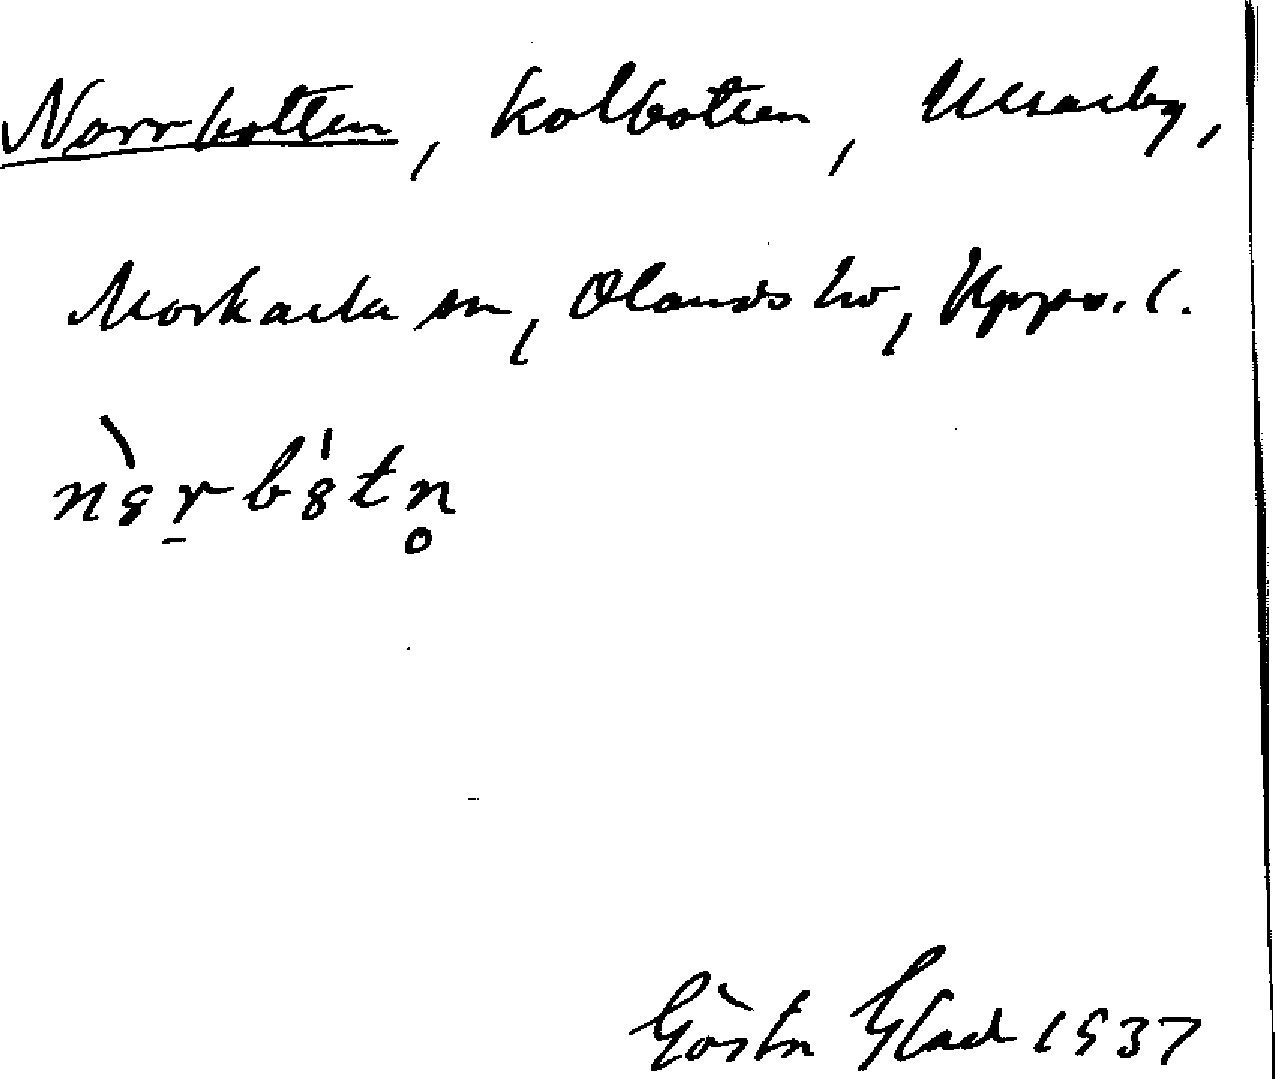 Norrbotten, kolbotten, Ullsarby,
Morkarla sn, Olands hd, Upps. l.
Gösta Glad 1937